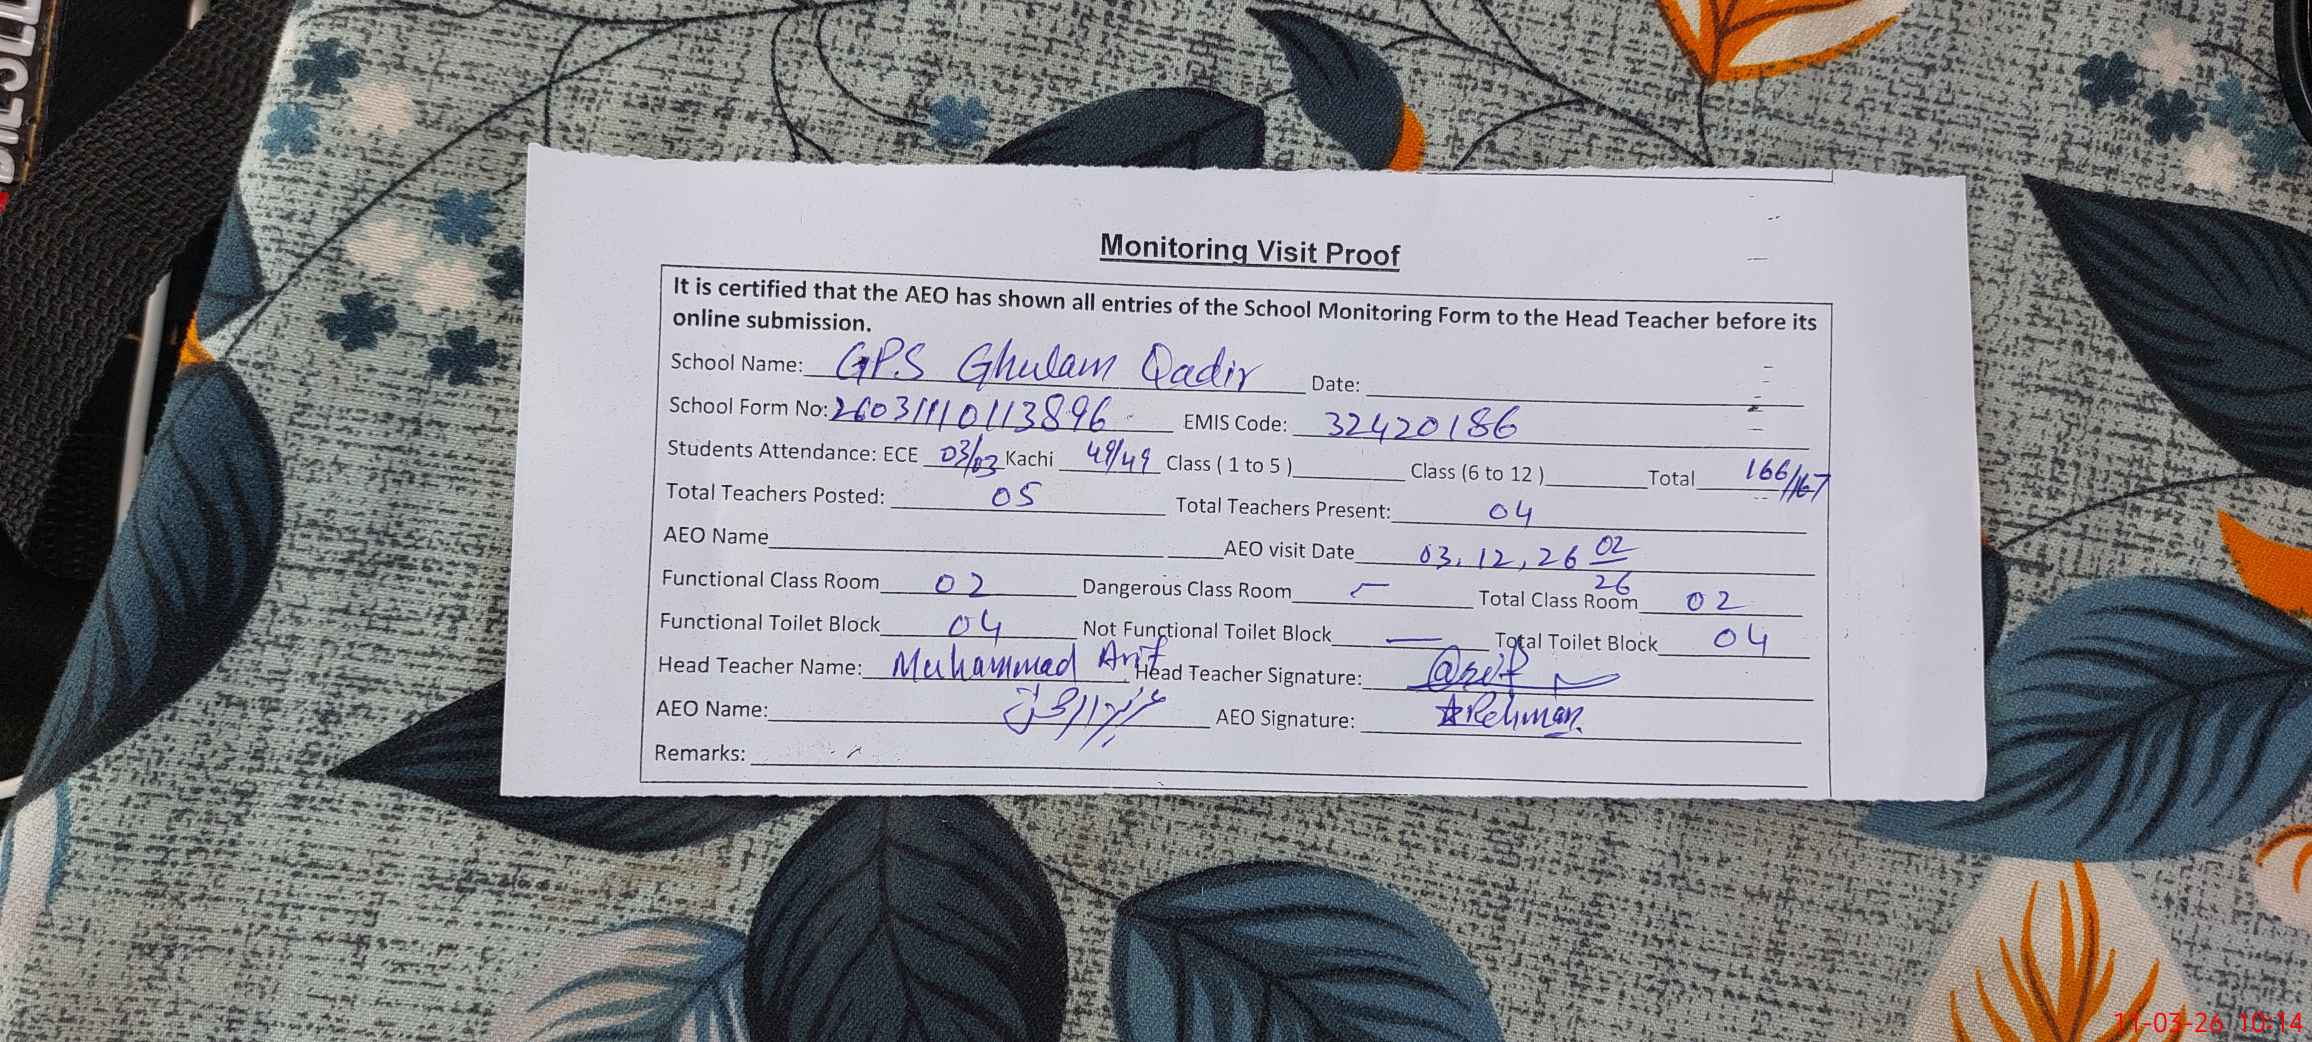 Monitoring Visit Proof
It is certified that the AEO has shown all entries of the School Monitoring Form to the Head Teacher before its
online submission.
School Name: GPS Ghulam Qadir Date:
School Form No: 260311110113896 EMIS Code: 32420186
Students Attendance: ECE 03/03 Kachi 49/49 Class ( 1 to 5 ) Class (6 to 12 ) Total 166/167
Total Teachers Posted: 05 Total Teachers Present: 04
AEO Name AEO visit Date 03, 12, 26 02
26
Functional Class Room 02 Dangerous Class Room — Total Class Room 02
Functional Toilet Block 04 Not Functional Toilet Block — Total Toilet Block 04
Head Teacher Name: Muhammad Arif Head Teacher Signature: Arif
AEO Name: عزیز الرحمٰن AEO Signature: Rehman.
Remarks:
11-03-26 10:14